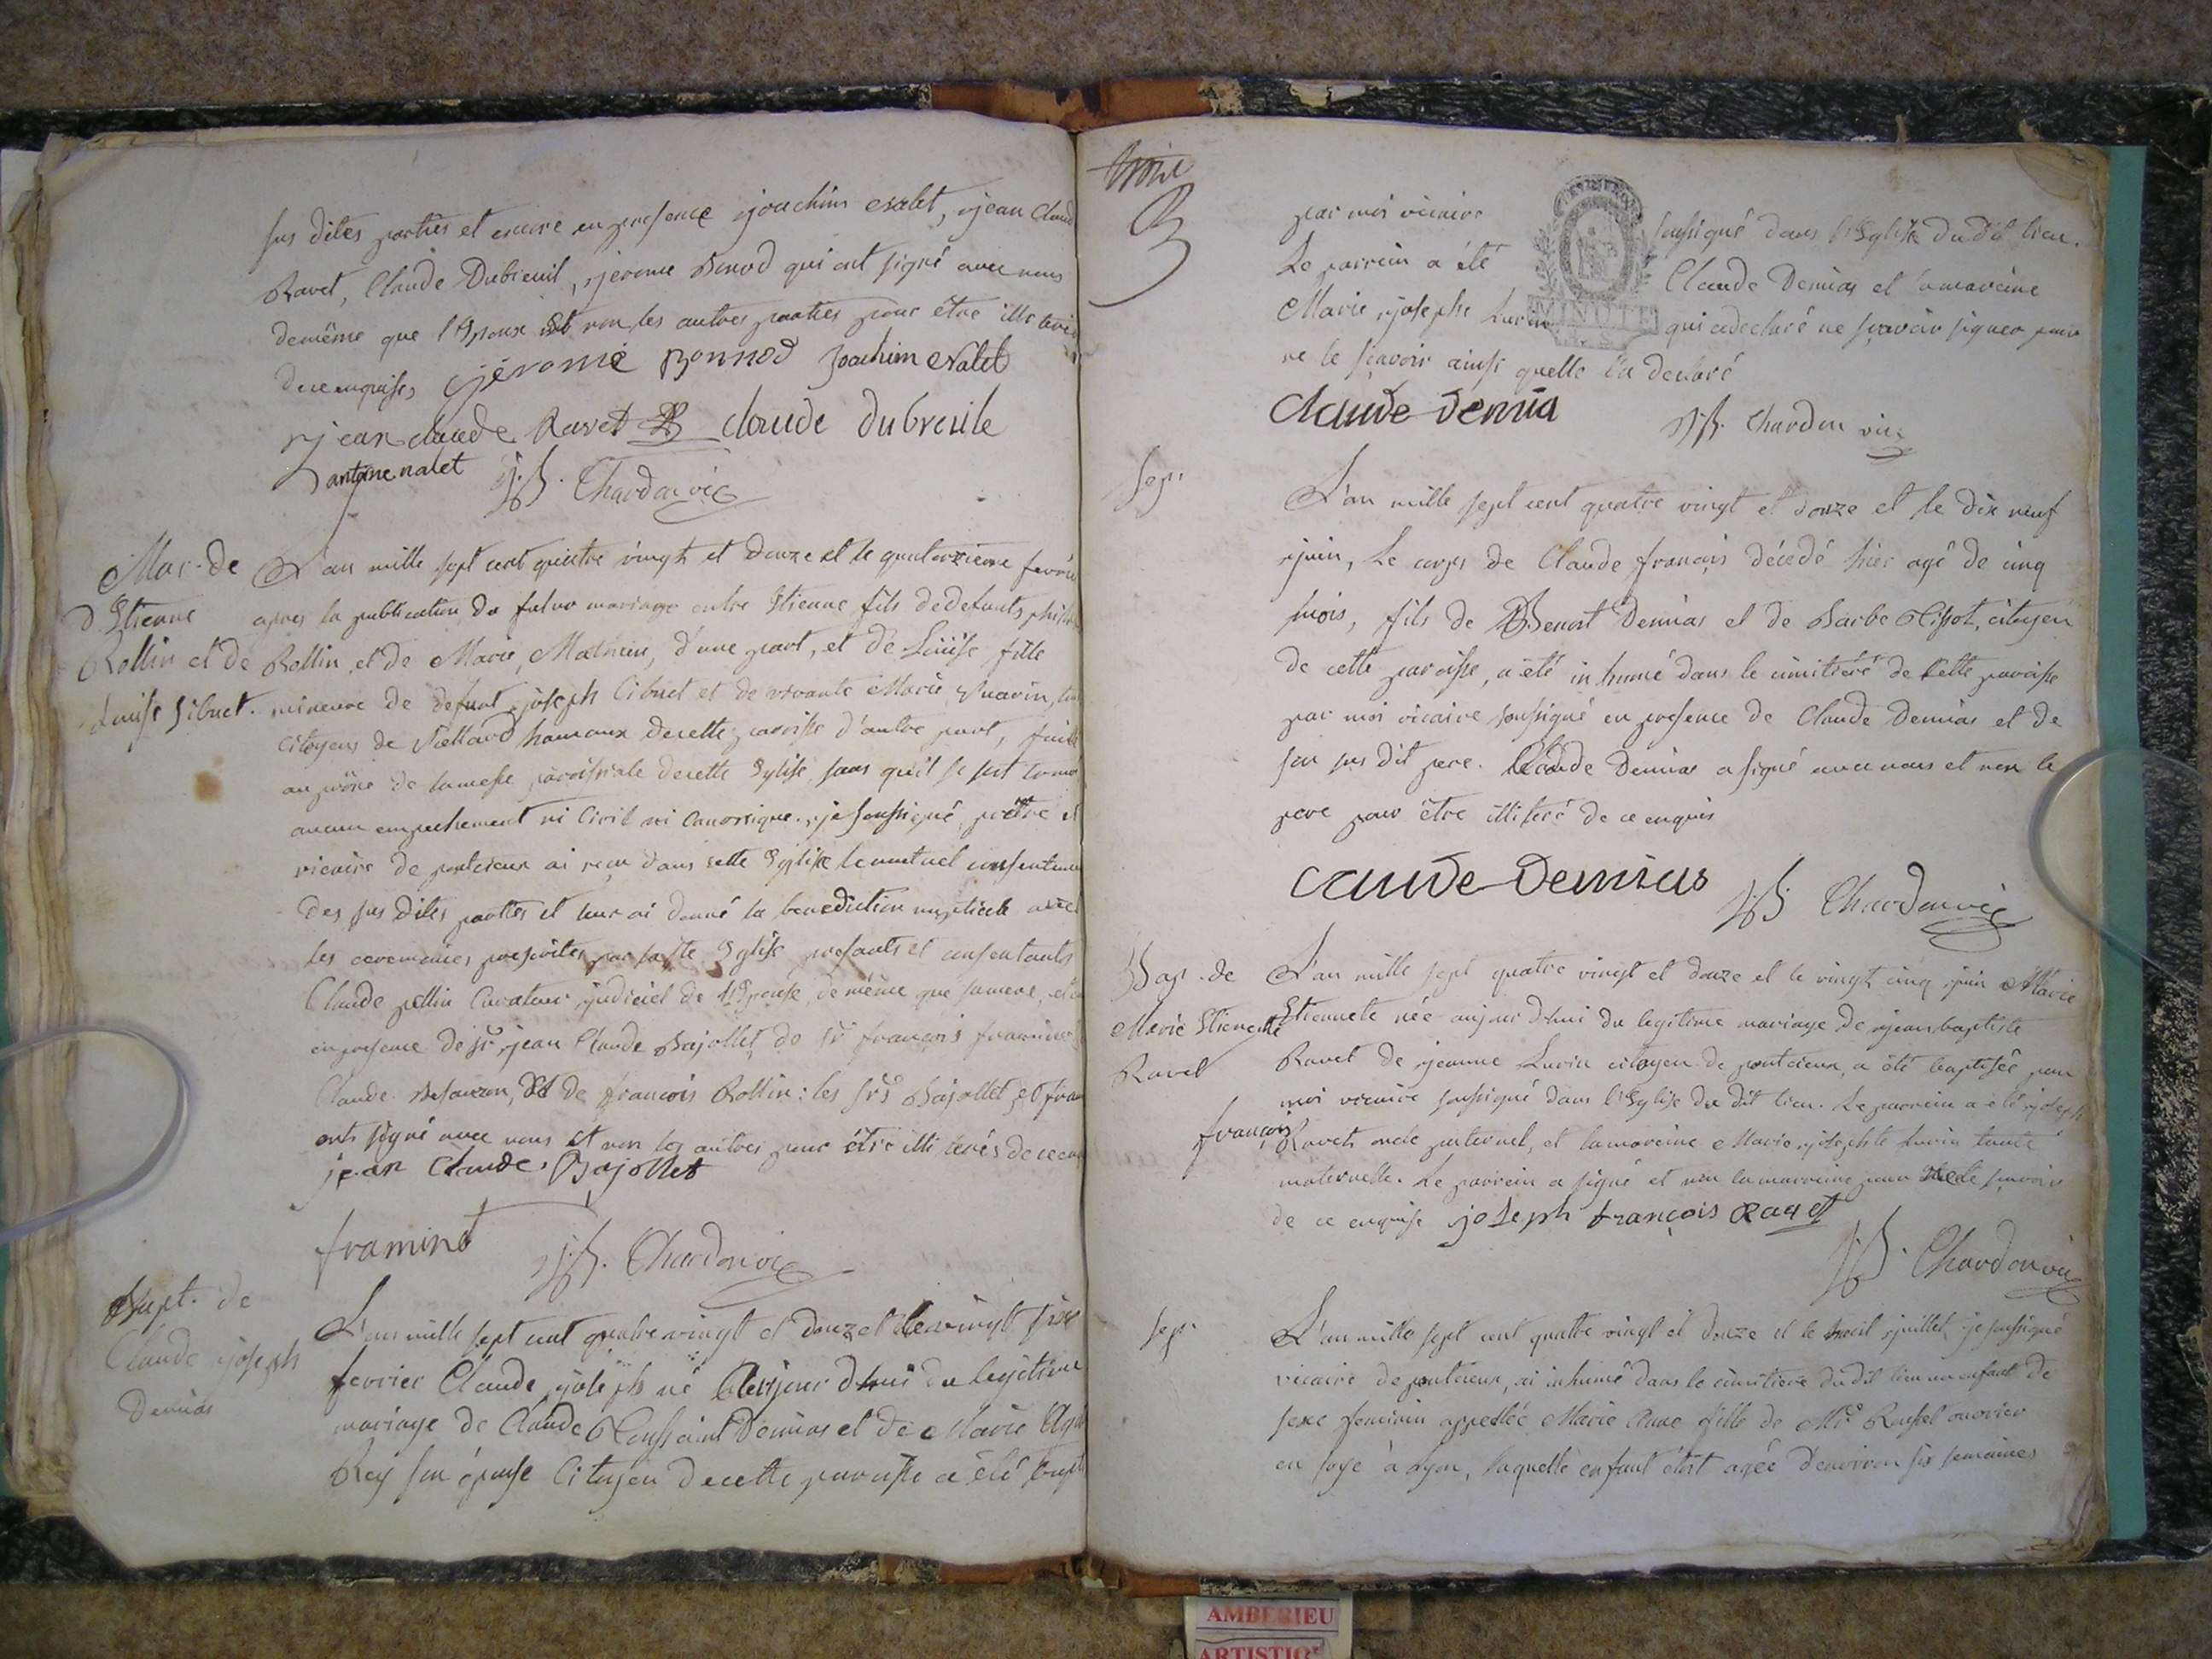 sus dites parties et encore en presence joachim exalet, jean Claude
Ravet, Claude Dubreuil, jerome Bonnod qui ont signé avec nous
demême que l'Epoux et non les autres parties pour être illiterés
dece enquises jérome Bonnod Joachim exalet
jean claude Ravet claude dubreuile
antoine nalet j.b. Chardon vic
Mar. de L'an mille sept cent quatre vingt et douze et le quatorzieme fevrier
d'Etienne apres la publication du futur mariage entre Etienne fils de defunts
Rollin et de Rollin et de Marie Mathieu, d'une part, et de Louise fille
Louise Sibuet. mineure de defunt joseph Cibuet et de vivante Marie
Citoyens de hameaux decette paroisse d'autre part, faite
au prône de lamesse paroissiale decette Eglise sans qu'il se soit trouvé
aucun empechement ni Civil ni Canonique. je soussigné prêtre et
vicaire de poncieux ai reçu dans cette Eglise le mutuel consentement
des sus dites parties et leur ai donné la benediction nuptiale avec
les ceremonies prescrites par la ste Eglise presents et consentants
Claude Curateur judiciel de l'Epouse, demême que samere, et en
en presence de sr jean Claude Bajollet, de sr françois framinet
Claude Besanson, et de françois Rollin: les srs Bajollet et
ont signé avec nous et non les autres pour être illiterés dece
jean Claude Bajollet
framinet j.b. Chardon vic
Bapt. de L'an mille sept cent quatre vingt et douze et le vingt six
Claude joseph fevrier Claude joseph né d'hui du legitime
Demias mariage de Claude Toussaint Demias et de Marie
Rey son épouse Citoyen decette paroisse a été bapt
par moi vicaire soussigné dans l'Eglise dudit lieu.
Le parrein a été Claude Demias et la mareine
Marie josephe MINUTE qui a declaré ne sçavoir signer pour
ne le sçavoir ainsi quelle l'a declaré
Claude Demia j.b. Chardon vic
Sep. L'an mille sept cent quatre vingt et douze et le dix neuf
juin, Le corps de Claude françois décédé hier agé de cinq
mois, fils de Benoit Demias et de Barbe Tissot, citoyen
de cette paroisse, a été inhumé dans le cimitiére de cette paroisse
par moi vicaire soussigné en presence de Claude Demias et de
son sus dit pere. Claude Demias a signé avec nous et non le
pere pour être illiteré de ce enquis
Claude Demias j.b. Chardon vic
Bap. de L'an mille sept quatre vingt et douze et le vingt cinq juin Marie
Marie Etiennette Etiennete née aujourd'hui du legitime mariage de jean baptiste
Ravet Ravet de jeanne Lurin citoyen de poncieux, a été baptisée par
moi vicaire soussigné dans l'Eglise du dit lieu. Le parrein a été joseph
françois Ravet oncle paternel, et lamareine Marie josephte Lurin tante
maternelle. Le parrein a signé et non lamarreine pour ne le sçavoir
de ce enquise joseph françois Ravet
j.b. Chardon vic
Sep. L'an mille sept cent quatre vingt et douze et le juillet je soussigné
vicaire de poncieux, ai inhumé dans le cimitiere du dit lieu un enfant de
sexe feminin appellée Marie Anne fille de Roussel ouvrier
en soye à Lyon, laquelle enfant étoit agée d'environ six semaines
AMBERIEU
ARTISTIQ